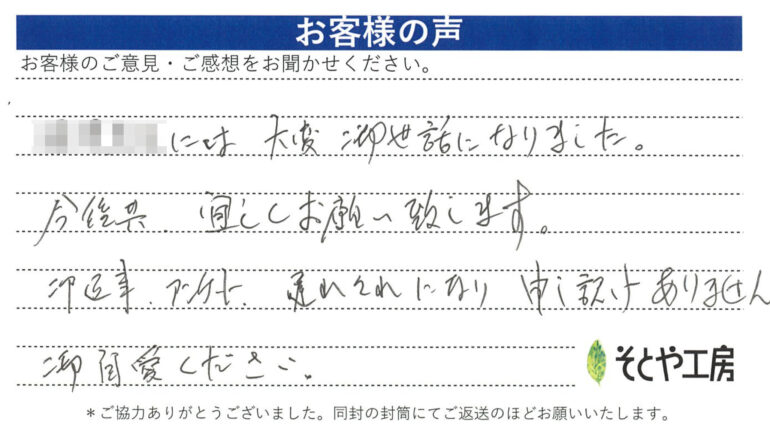 お客様の声
お客様のご意見・ご感想をお聞かせください。
には 大変 御世話になりました。
今後共、宜しくお願い致します。
御返事、アンケート、遅れそれになり 申し訳けありません
御自愛ください。
そとや工房
＊ご協力ありがとうございました。同封の封筒にてご返送のほどお願いいたします。